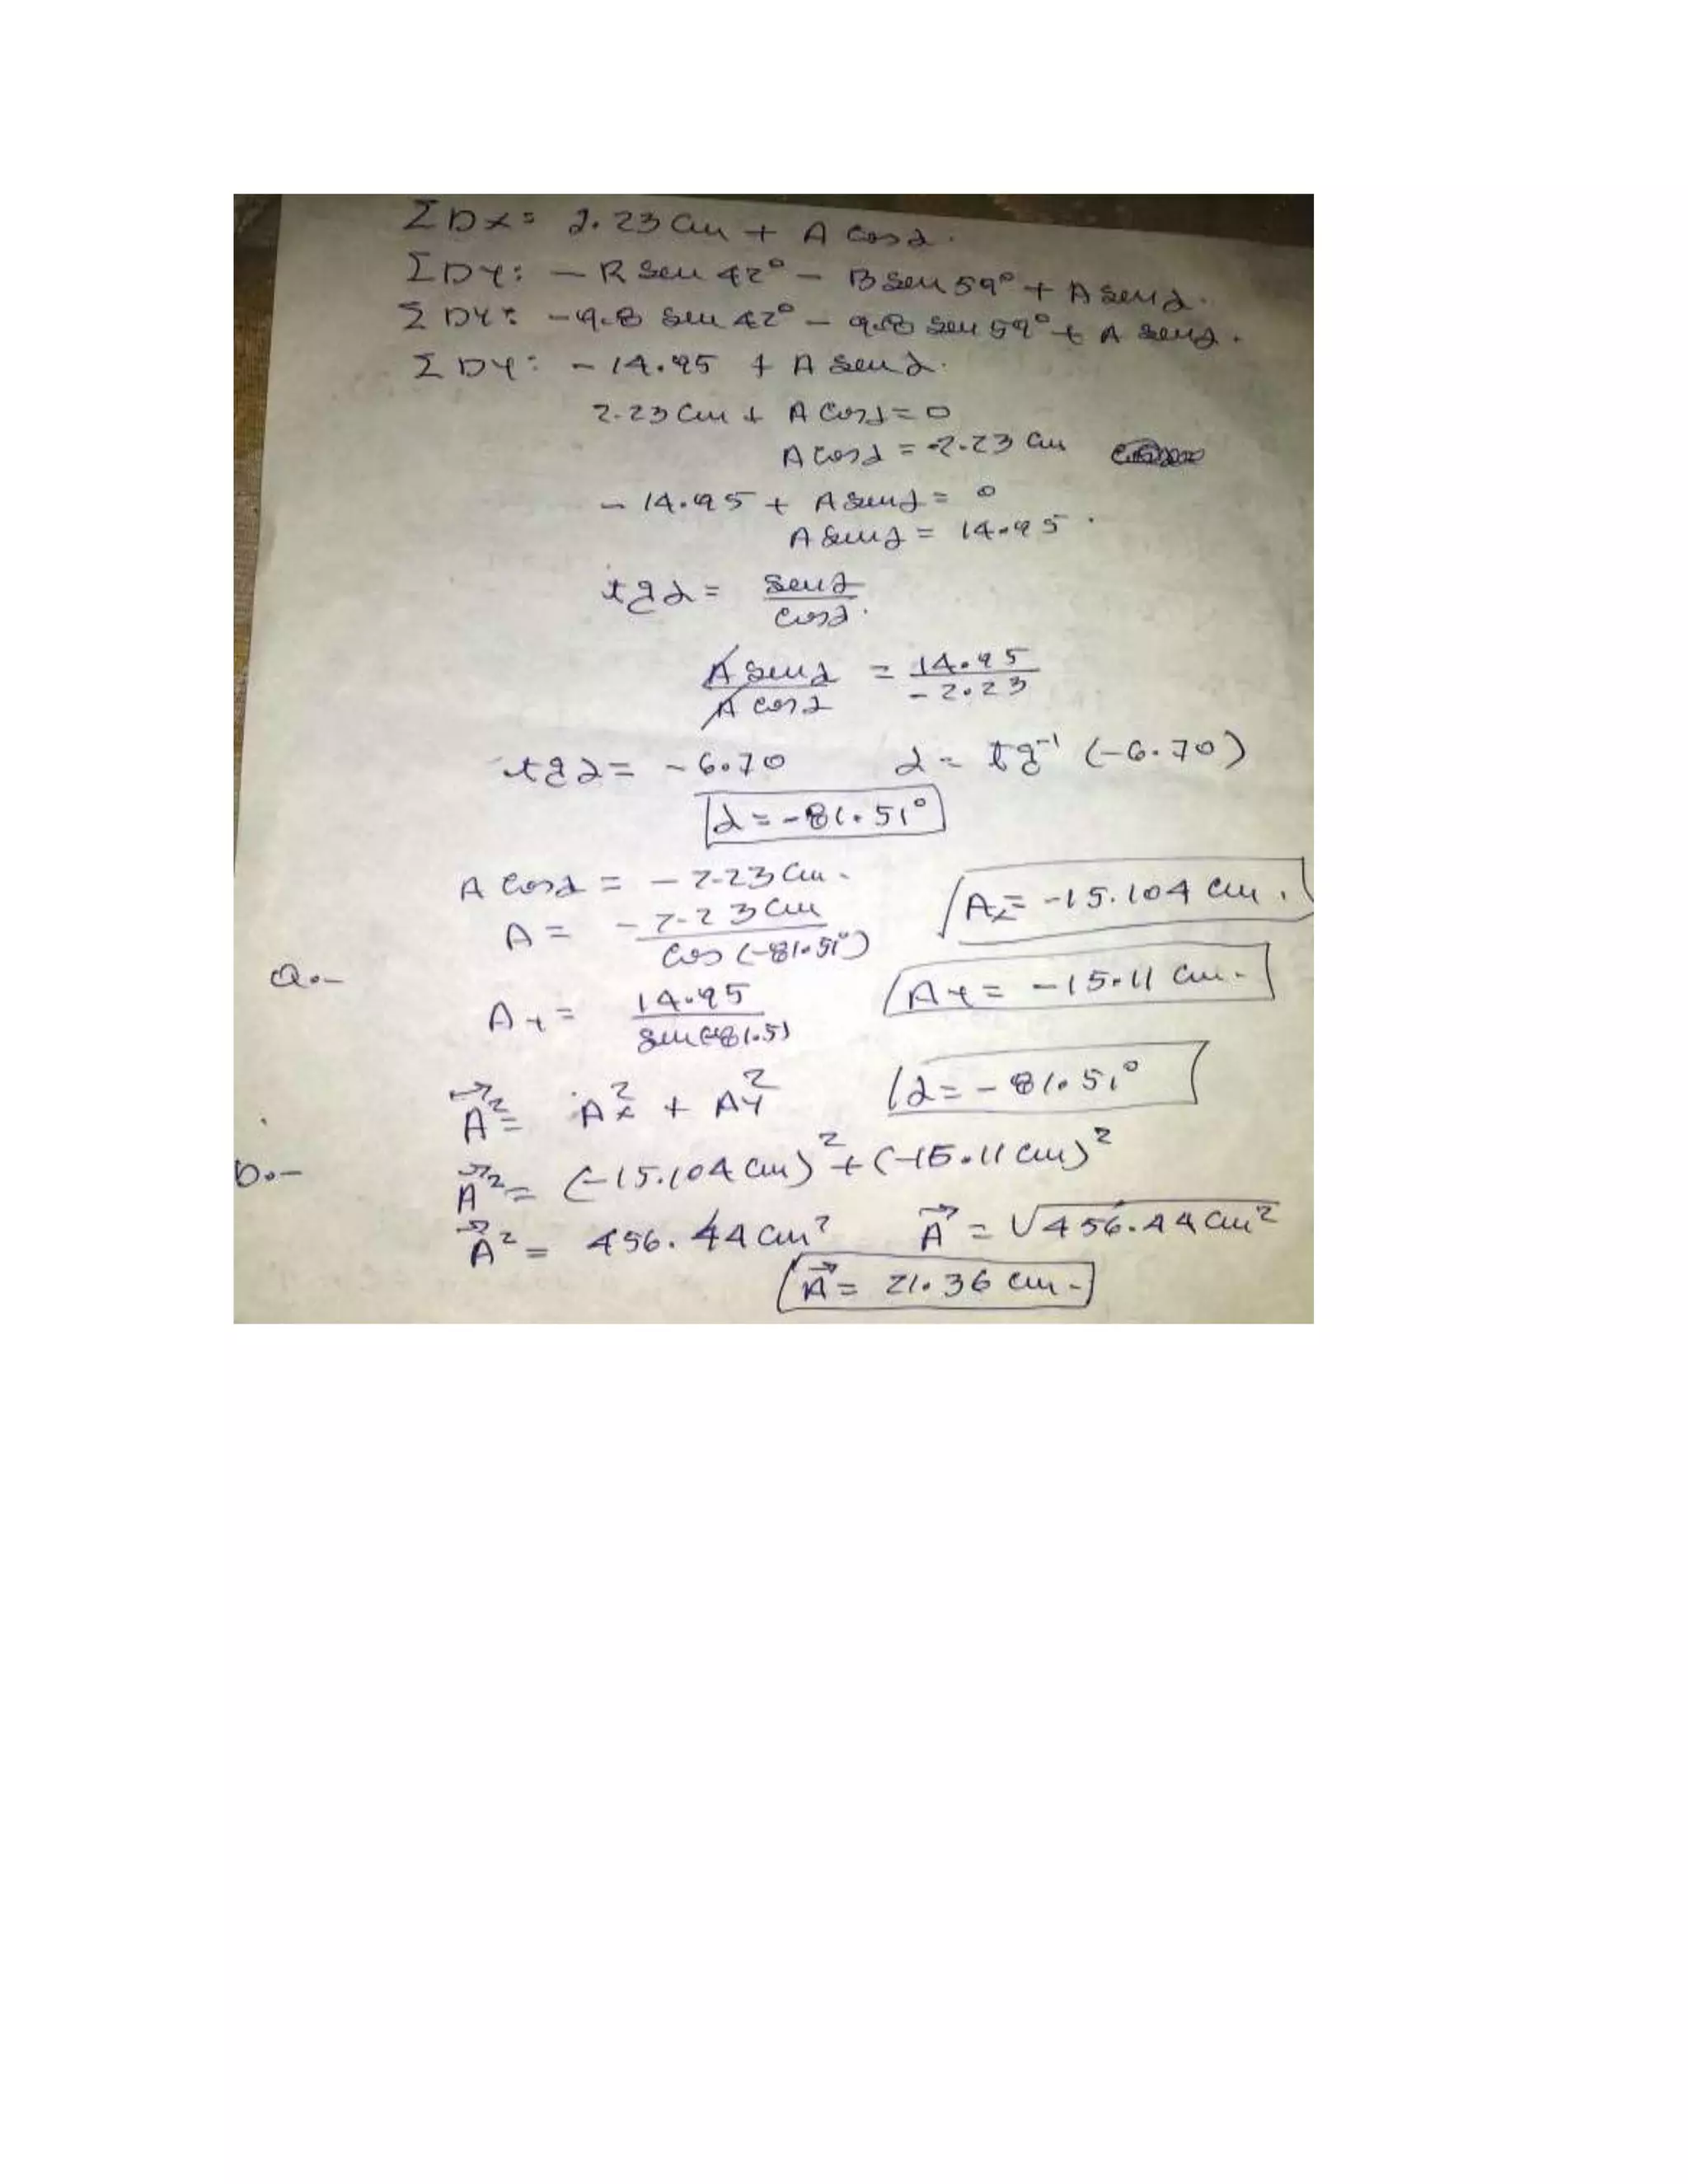 ΣDx= 2.23 cm + A cos α.
ΣDy: - R sen 42° - B sen 59° + A sen α.
ΣDy: -9.8 sen 42° - 9.8 sen 59° + A sen α.
ΣDy: - 14.95 + A sen α.
2.23 cm + A cos α = 0
A cos α = -2.23 cm
- 14.95 + A sen α = 0
A sen α = 14.95.
tg α = sen α / cos α.
A sen α / A cos α = 14.95 / -2.23
tg α = - 6.70 α = tg⁻¹ (-6.70)
α = -81.51°
A cos α = - 2.23 cm.
A = - 2.23 cm / cos (-81.51°) Ax= -15.104 cm.
a.-
Ay = 14.95 / sen(-81.51 Ay = -15.11 cm.-
A⃗² = Ax² + Ay² α= - 81.51°
b.-
A⃗² = (-15.104 cm)² + (-15.11 cm)²
A⃗² = 456.44 cm² A⃗ = √456.44 cm²
A⃗ = 21.36 cm.-